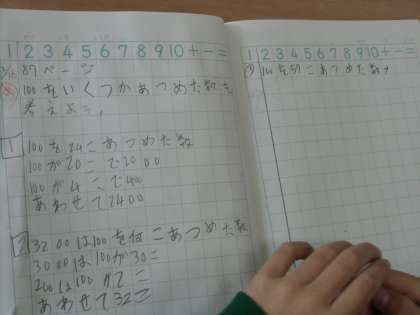 1 2 3 4 5 6 7 8 9 10 + - =
87ページ
100をいくつかあつめた数を
考えよう。
1
100を24こあつめた数
100が20こで2000
100が4こで400
あわせて2400
2
3200は100を何こあつめた数
3000は100が30こ
200は100が2こ
あわせて32こ
1 2 3 4 5 6 7 8 9 10 + - =
100を こあつめた数